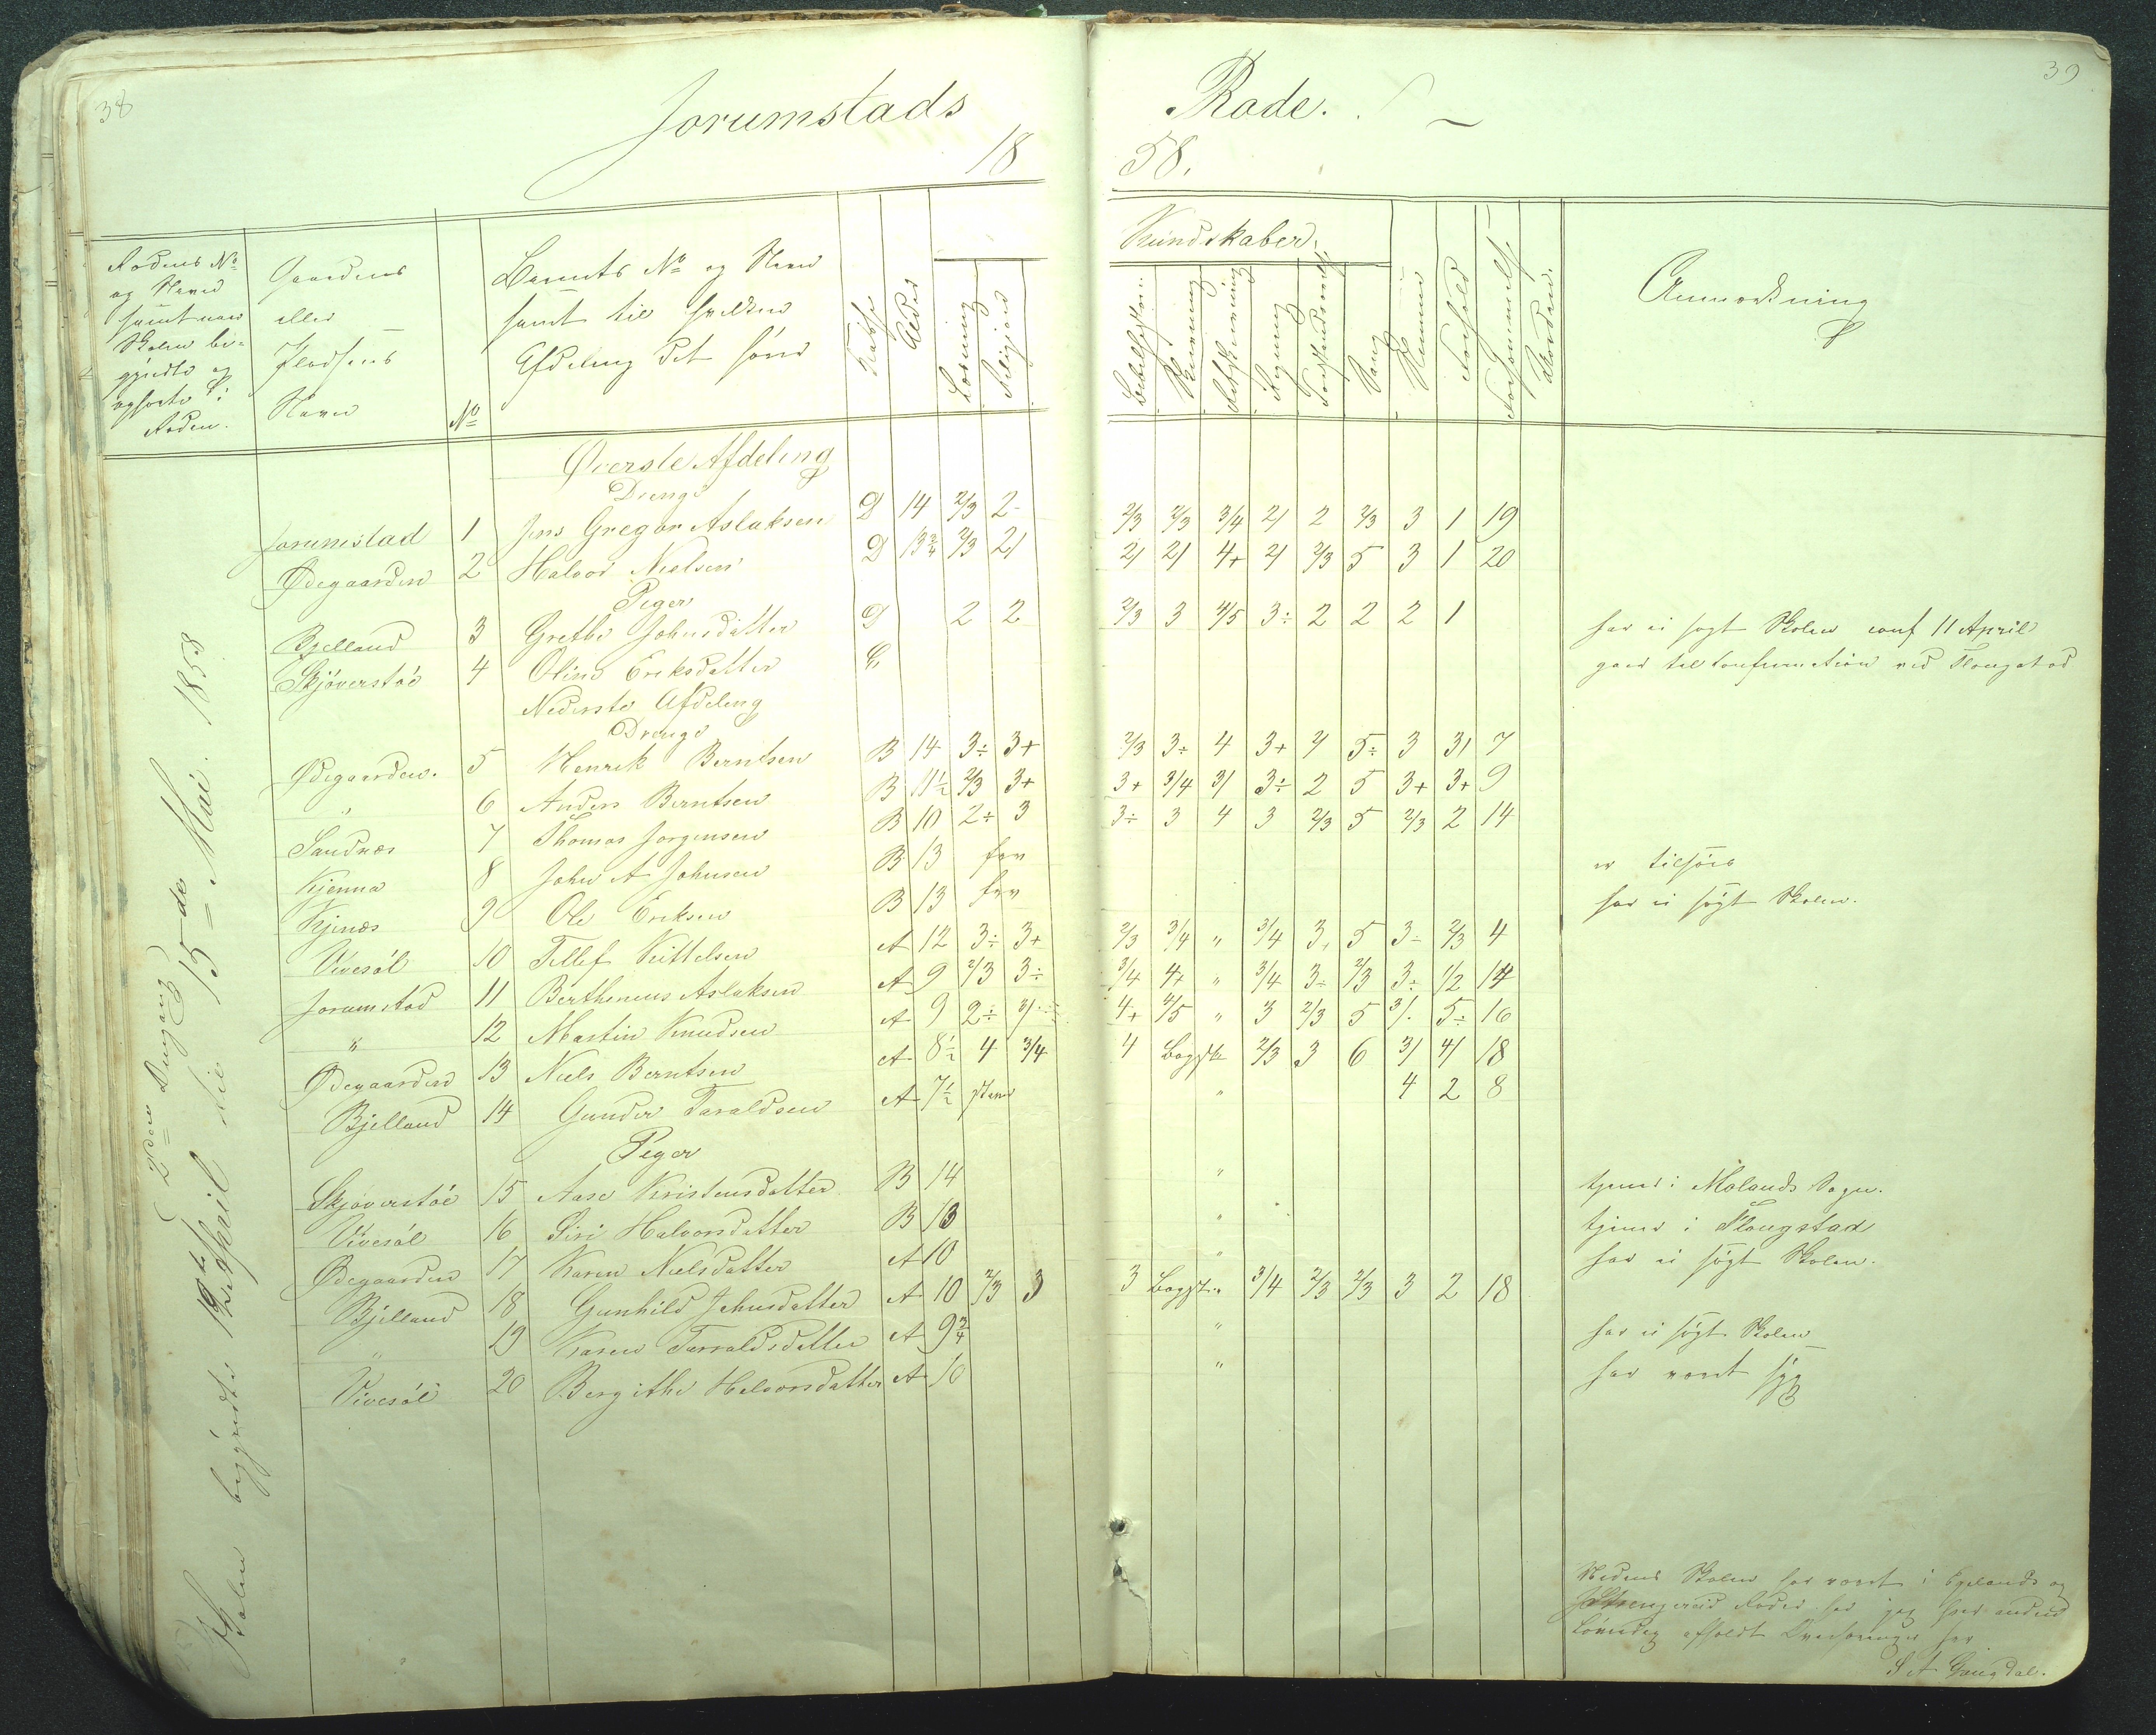 38
39
Jorumstads Rode.
1858.
Rodens No
og Navn
samt naar
Skolen be=
gyndte og
ophørte i
Roden.
Gaardens
eller
Pladsens
Navn
No
Barnets No og Navn
samt til hvilken
Afdeling det hører
Klasse
Alder
Kundskaber.
Læsning
Religion
Bibelhistorie
Skrivning
Retskrivning
Regning
Forstandsøvelse
Sang
Nemme
Forhold
Forsømmelser
Anmærkning
Øverste Afdeling
Drenge
Jorumstad 1 Jens Gregor Aslaksen D 14 2/3 2 2/3 2/3 3/4 2/ 2 2/3 3 1 19
Ødegaarden 2 Halvor Nielsen D 13 3/4 2/3 2/ 2/ 2/ 4+ 2/ 2/3 5 3 1 20
Piger
Bjelland 3 Grethe Johnsdatter D 2 2 2/3 3 4/5 3÷ 2 2 2 1 har ei søgt Skolen conf 11 April
Skjøverstøe 4 Oline Eriksdatter C gaar til Confirmation ved Flougstad
Nederste Afdeling
Drenge
Ødegaarden. 5 Henrik Berntsen B 14 3÷ 3+ 2/3 3÷ 4 3+ 2/ 5÷ 3 3/ 7
" 6 Anders Berntsen B 11 1/2 2/3 3+ 3+ 3/4 3/ 3÷ 2 5 3+ 3+ 9
Sandnæs 7 Thomas Jorgensen B 10 2÷ 3 3÷ 3 4 3 2/3 5 2/3 2 14
Kjenna 8 John A Johnsen B 13 er tilsøes
Kjenæs 9 Ole Eriksen B 13 har ei søgt Skolen.
Vivesøl 10 Tellef Kittelsen A 12 3÷ 3+ 2/3 3/4 " 3/4 3+ 5 3÷ 2/3 4
Jorumstad 11 Berthinius Aslaksen A 9 2/3 3÷ 3/4 4+ " 3/4 3÷ 2/3 3÷ 1/2 14
" 12 Martin Knudsen A 9 2÷ 3/ 4+ 4/5 " 3 2/3 5 3/. 5÷ 16
Ødegaarden 13 Niels Berntsen A 8 1/2 4 3/4 4 Bogst. 2/3 3 6 3/ 4/ 18
Bjelland 14 Gunder Taraldsen A 7 1/2 stav " 4 2 8
Piger
Skjøverstøe 15 Aase Kristensdatter B 14 " tjener i Molands Sogn.
Vivesøl 16 Siri Halvorsdatter B 13 " tjener i Flougstad
Ødegaarden 17 Karen Nielsdatter A 10 " har ei søgt Skolen.
Bjelland 18 Gunhild Johnsdatter A 10 2/3 3 3 Bogst. " 3/4 2/3 2/3 3 2 18
" 19 Karen Tarraldsdatter A 9 3/4 " har ei søgt Skolen
Vivesøl 20 Bergithe Halvorsdatter A 10 " har været syg
2den Omgang
Skolen begyndte 19te April til 15de Mai. 1858
Medens Skolen har været i Espelands og
Strengereid Roder har jeg hver anden
Løverdag afholdt Overhøringer her
S A Gongdal.